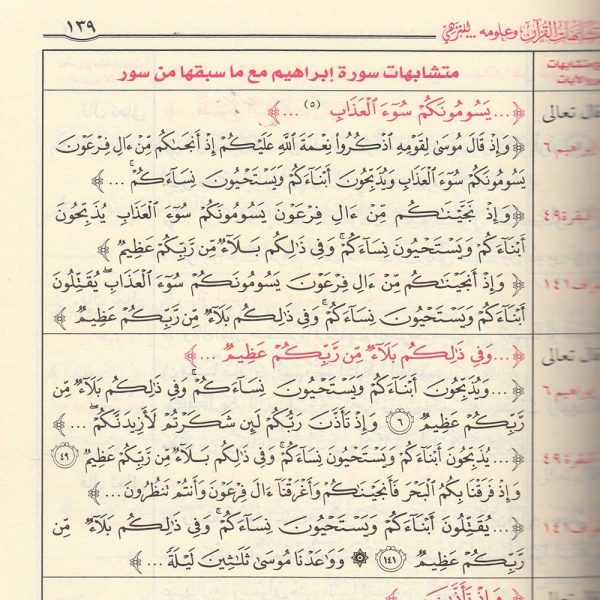 متشابهات القرآن وعلومه ... للنزهي
١٣٩
متشابهات سورة إبراهيم مع ما سبقها من سور
قال تعالى
﴿... يَسُومُونَكُمْ سُوٓءَ ٱلْعَذَابِ (٥) ...﴾
إبراهيم ٦
﴿وَإِذْ قَالَ مُوسَىٰ لِقَوْمِهِ ٱذْكُرُوا۟ نِعْمَةَ ٱللَّهِ عَلَيْكُمْ إِذْ أَنجَىٰكُم مِّنْ ءَالِ فِرْعَوْنَ
يَسُومُونَكُمْ سُوٓءَ ٱلْعَذَابِ وَيُذَبِّحُونَ أَبْنَآءَكُمْ وَيَسْتَحْيُونَ نِسَآءَكُمْ ۚ ...﴾
البقرة ٤٩
﴿وَإِذْ نَجَّيْنَٰكُم مِّنْ ءَالِ فِرْعَوْنَ يَسُومُونَكُمْ سُوٓءَ ٱلْعَذَابِ يُذَبِّحُونَ
أَبْنَآءَكُمْ وَيَسْتَحْيُونَ نِسَآءَكُمْ ۚ وَفِى ذَٰلِكُم بَلَآءٌ مِّن رَّبِّكُمْ عَظِيمٌ﴾
﴿وَإِذْ أَنجَيْنَٰكُم مِّنْ ءَالِ فِرْعَوْنَ يَسُومُونَكُمْ سُوٓءَ ٱلْعَذَابِ ۖ يُقَتِّلُونَ
أَبْنَآءَكُمْ وَيَسْتَحْيُونَ نِسَآءَكُمْ ۚ وَفِى ذَٰلِكُم بَلَآءٌ مِّن رَّبِّكُمْ عَظِيمٌ﴾
قال تعالى
﴿... وَفِى ذَٰلِكُم بَلَآءٌ مِّن رَّبِّكُمْ عَظِيمٌ ...﴾
إبراهيم ٦
﴿... وَيُذَبِّحُونَ أَبْنَآءَكُمْ وَيَسْتَحْيُونَ نِسَآءَكُمْ ۚ وَفِى ذَٰلِكُم بَلَآءٌ مِّن
رَّبِّكُمْ عَظِيمٌ ﴿٦﴾ وَإِذْ تَأَذَّنَ رَبُّكُمْ لَئِن شَكَرْتُمْ لَأَزِيدَنَّكُمْ ۖ ...﴾
البقرة ٤٩
﴿... يُذَبِّحُونَ أَبْنَآءَكُمْ وَيَسْتَحْيُونَ نِسَآءَكُمْ ۚ وَفِى ذَٰلِكُم بَلَآءٌ مِّن رَّبِّكُمْ عَظِيمٌ ﴿٤٩﴾
وَإِذْ فَرَقْنَا بِكُمُ ٱلْبَحْرَ فَأَنجَيْنَٰكُمْ وَأَغْرَقْنَآ ءَالَ فِرْعَوْنَ وَأَنتُمْ تَنظُرُونَ ...﴾
﴿... يُقَتِّلُونَ أَبْنَآءَكُمْ وَيَسْتَحْيُونَ نِسَآءَكُمْ ۚ وَفِى ذَٰلِكُم بَلَآءٌ مِّن
رَّبِّكُمْ عَظِيمٌ ﴿١٤١﴾ ۞ وَوَٰعَدْنَا مُوسَىٰ ثَلَٰثِينَ لَيْلَةً ...﴾
﴿... وَإِذْ تَأَذَّنَ ...﴾